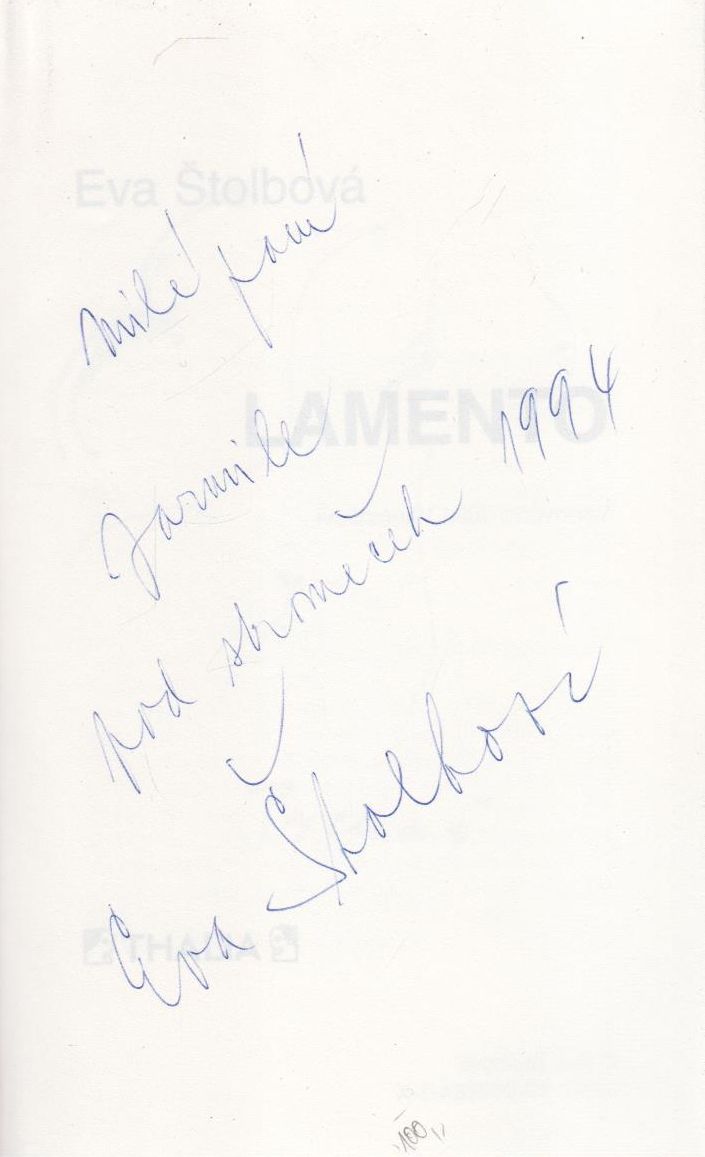 Eva Štolbová
Milé paní
LAMENTO
Jarmile
pod stromeček 1994
Eva Štolbová
THALIA
100,,